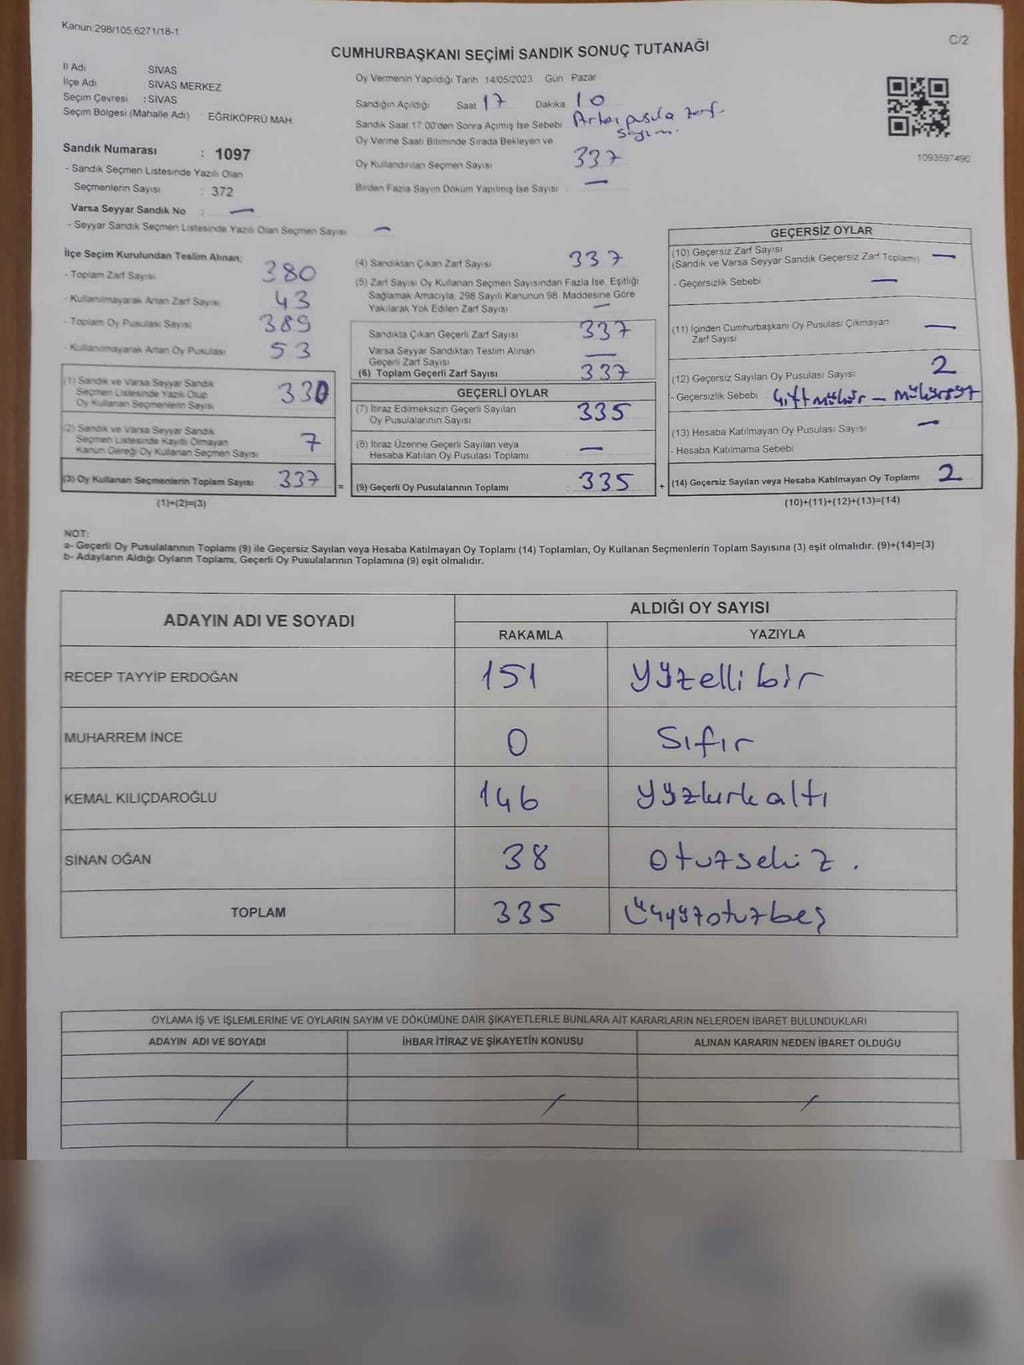 Kanun:298/105,6271/18-1
C/2
CUMHURBAŞKANI SEÇİMİ SANDIK SONUÇ TUTANAĞI
İl Adı SİVAS
İlçe Adı SİVAS MERKEZ
Seçim Çevresi :SİVAS
Seçim Bölgesi (Mahalle Adı) EĞRİKÖPRÜ MAH.
Sandık Numarası : 1097
- Sandık Seçmen Listesinde Yazılı Olan
Seçmenlerin Sayısı : 372
Varsa Seyyar Sandık No : —
- Seyyar Sandık Seçmen Listesinde Yazılı Olan Seçmen Sayısı —
Oy Vermenin Yapıldığı Tarih 14/05/2023 Gün Pazar
Sandığın Açıldığı Saat 17 Dakika 10
Sandık Saat 17:00'den Sonra Açılmış İse Sebebi Artan pusula zarf
sayımı.
Oy Verme Saati Bitiminde Sırada Bekleyen ve
Oy Kullandırılan Seçmen Sayısı 337
Birden Fazla Sayım Döküm Yapılmış İse Sayısı —
1093597490
İlçe Seçim Kurulundan Teslim Alınan;
- Toplam Zarf Sayısı 380
- Kullanılmayarak Artan Zarf Sayısı 43
- Toplam Oy Pusulası Sayısı 389
- Kullanılmayarak Artan Oy Pusulası 53
(1) Sandık ve Varsa Seyyar Sandık
Seçmen Listesinde Yazılı Olup
Oy Kullanan Seçmenlerin Sayısı 330
(2) Sandık ve Varsa Seyyar Sandık
Seçmen Listesinde Kayıtlı Olmayan
Kanun Gereği Oy Kullanan Seçmen Sayısı 7
(3) Oy Kullanan Seçmenlerin Toplam Sayısı 337 =
(1)+(2)=(3)
(4) Sandıktan Çıkan Zarf Sayısı 337
(5) Zarf Sayısı Oy Kullanan Seçmen Sayısından Fazla İse, Eşitliği
Sağlamak Amacıyla, 298 Sayılı Kanunun 98. Maddesine Göre
Yakılarak Yok Edilen Zarf Sayısı
Sandıkta Çıkan Geçerli Zarf Sayısı 337
Varsa Seyyar Sandıktan Teslim Alınan
Geçerli Zarf Sayısı —
(6) Toplam Geçerli Zarf Sayısı 337
GEÇERLİ OYLAR
(7) İtiraz Edilmeksizin Geçerli Sayılan
Oy Pusulalarının Sayısı 335
(8) İtiraz Üzerine Geçerli Sayılan veya
Hesaba Katılan Oy Pusulası Toplamı —
(9) Geçerli Oy Pusulalarının Toplamı 335 +
GEÇERSİZ OYLAR
(10) Geçersiz Zarf Sayısı
(Sandık ve Varsa Seyyar Sandık Geçersiz Zarf Toplamı) —
- Geçersizlik Sebebi —
(11) İçinden Cumhurbaşkanı Oy Pusulası Çıkmayan
Zarf Sayısı —
(12) Geçersiz Sayılan Oy Pusulası Sayısı 2
- Geçersizlik Sebebi Çift mühür — mühürsüz
(13) Hesaba Katılmayan Oy Pusulası Sayısı —
- Hesaba Katılmama Sebebi
(14) Geçersiz Sayılan veya Hesaba Katılmayan Oy Toplamı 2
(10)+(11)+(12)+(13)=(14)
NOT:
a- Geçerli Oy Pusulalarının Toplamı (9) ile Geçersiz Sayılan veya Hesaba Katılmayan Oy Toplamı (14) Toplamları, Oy Kullanan Seçmenlerin Toplam Sayısına (3) eşit olmalıdır. (9)+(14)=(3)
b- Adayların Aldığı Oyların Toplamı, Geçerli Oy Pusulalarının Toplamına (9) eşit olmalıdır.
ADAYIN ADI VE SOYADI ALDIĞI OY SAYISI
RAKAMLA YAZIYLA
RECEP TAYYİP ERDOĞAN 151 yüzelli bir
MUHARREM İNCE 0 Sıfır
KEMAL KILIÇDAROĞLU 146 yüzkırk altı
SİNAN OĞAN 38 otuzsekiz.
TOPLAM 335 Üçyüzotuzbeş
OYLAMA İŞ VE İŞLEMLERİNE VE OYLARIN SAYIM VE DÖKÜMÜNE DAİR ŞİKAYETLERLE BUNLARA AİT KARARLARIN NELERDEN İBARET BULUNDUKLARI
ADAYIN ADI VE SOYADI İHBAR İTİRAZ VE ŞİKAYETİN KONUSU ALINAN KARARIN NEDEN İBARET OLDUĞU
/ / /